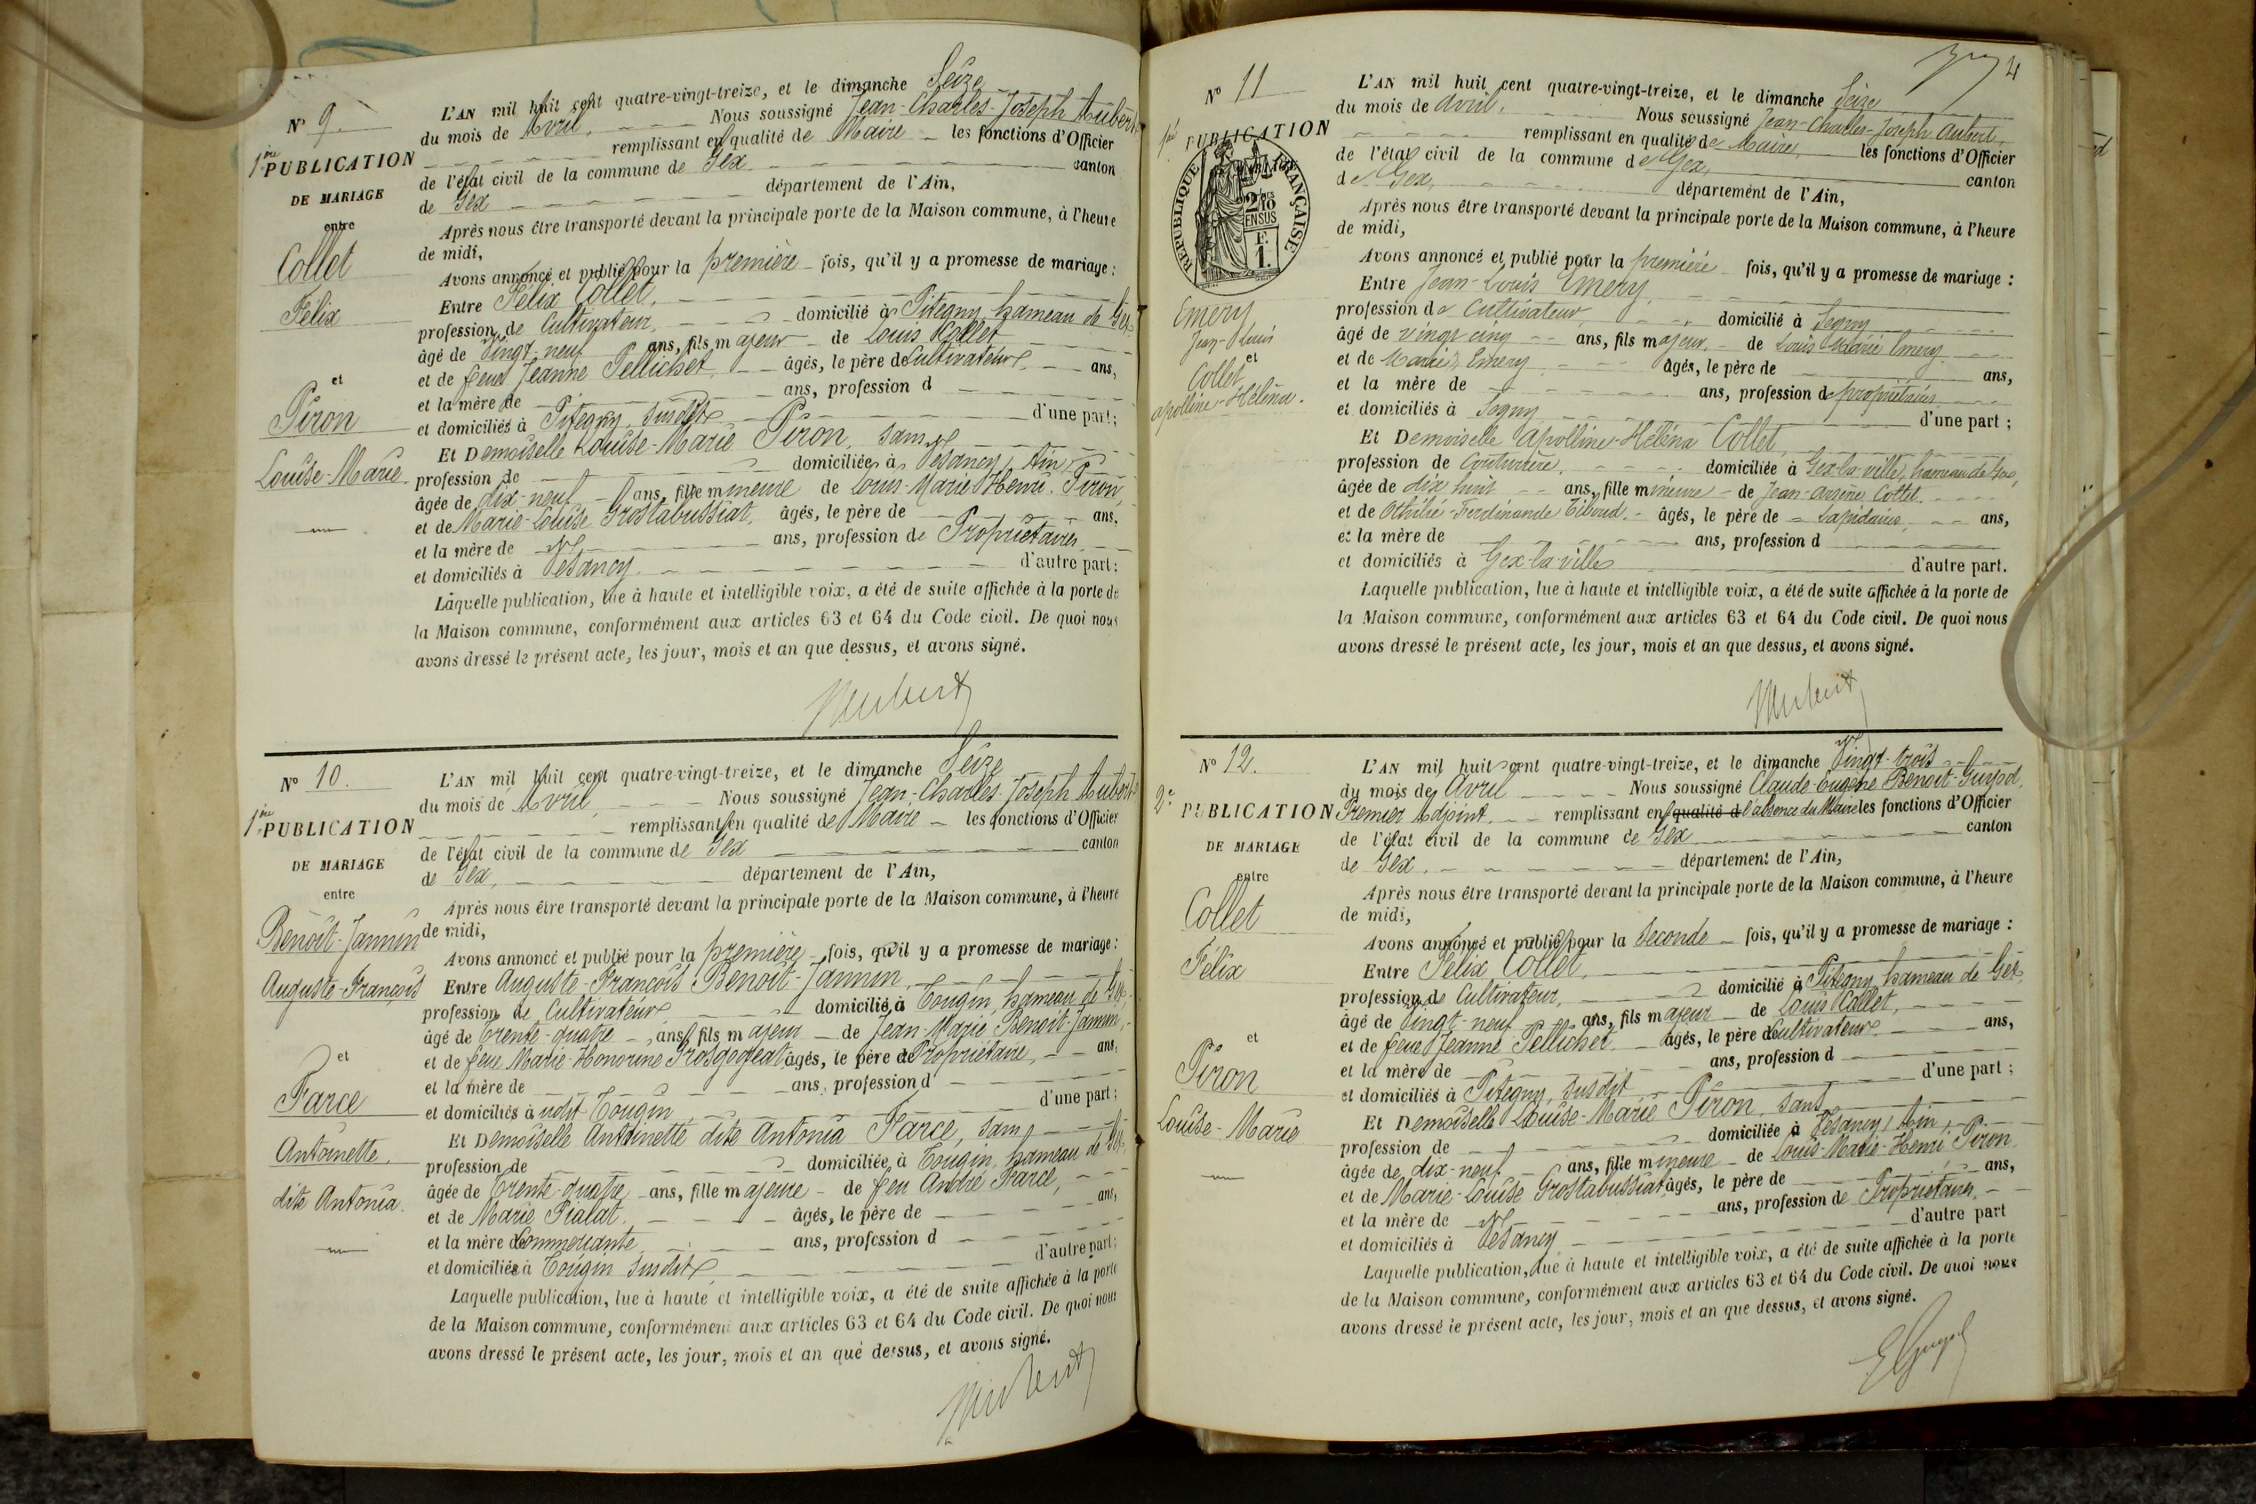 N° 9.
1ère PUBLICATION
DE MARIAGE
entre
Collet
Félix
et
Piron
Louise-Marie.
L'AN mil huit cent quatre-vingt-treize, et le dimanche Seize
du mois de Avril. Nous soussigné Jean-Charles-Joseph Aubert
remplissant en qualité de Maire les fonctions d'Officier
de l'état civil de la commune de Gex canton
de Gex département de l'Ain,
Après nous être transporté devant la principale porte de la Maison commune, à l'heure
de midi,
Avons annoncé et publié pour la première fois, qu'il y a promesse de mariage :
Entre Félix Collet,
profession de Cultivateur, domicilié à Pitegny, hameau de Gex
âgé de Vingt-neuf ans, fils majeur de Louis Collet
et de feue Jeanne Pellichet, âgés, le père de Cultivateur ans,
et la mère de ans, profession d
et domiciliés à Pitegny, susdit d'une part ;
Et Demoiselle Louise-Marie Piron, sans
profession de domiciliée à Vesancy, Ain,
âgée de dix-neuf ans, fille mineure de Louis-Marie Henri Piron,
et de Marie-Louise Grostabussiat, âgés, le père de ans,
et la mère de ans, profession de Propriétaires,
et domiciliés à Vesancy. d'autre part ;
Laquelle publication, lue à haute et intelligible voix, a été de suite affichée à la porte de
la Maison commune, conformément aux articles 63 et 64 du Code civil. De quoi nous
avons dressé le présent acte, les jour, mois et an que dessus, et avons signé.
Aubert
N° 10.
1ère PUBLICATION
DE MARIAGE
entre
Benoit-Jannin
Auguste-François
et
Farce
Antoinette,
dite Antonia.
L'AN mil huit cent quatre-vingt-treize, et le dimanche Seize
du mois de Avril, Nous soussigné Jean-Charles-Joseph Aubert
remplissant en qualité de Maire les fonctions d'Officier
de l'état civil de la commune de Gex canton
de Gex, département de l'Ain,
Après nous être transporté devant la principale porte de la Maison commune, à l'heure
de midi,
Avons annoncé et publié pour la première fois, qu'il y a promesse de mariage :
Entre Auguste-François Benoit-Jannin,
profession de Cultivateur domicilié à Tougin, hameau de Gex
âgé de Trente-quatre ans, fils majeur de Jean-Marie Benoit-Jannin,
et de feue Marie-Honorine âgés, le père de Propriétaire, ans,
et la mère de ans, profession d
et domiciliés à udit Tougin d'une part ;
Et Demoiselle Antoinette dite Antonia Farce, sans
profession de domiciliée à Tougin, hameau de Gex,
âgée de Trente-quatre ans, fille majeure de feu André Farce,
et de Marie Pialat, âgés, le père de ans,
et la mère de Commerçante ans, profession d
et domiciliés à Tougin susdit d'autre part ;
Laquelle publication, lue à haute et intelligible voix, a été de suite affichée à la porte
de la Maison commune, conformément aux articles 63 et 64 du Code civil. De quoi nous
avons dressé le présent acte, les jour, mois et an que dessus, et avons signé.
Aubert
4
N° 11
1re PUBLICATION
RÉPUBLIQUE FRANÇAISE
2/10 EN SUS
F.
1.
Emery
Jean-Louis
et
Collet
Apolline-Héléna.
L'AN mil huit cent quatre-vingt-treize, et le dimanche Seize
du mois de avril. Nous soussigné Jean-Charles-Joseph Aubert,
remplissant en qualité de Maire, les fonctions d'Officier
de l'état civil de la commune de Gex, canton
de Gex, département de l'Ain,
Après nous être transporté devant la principale porte de la Maison commune, à l'heure
de midi,
Avons annoncé et publié pour la première fois, qu'il y a promesse de mariage :
Entre Jean-Louis Emery,
profession de Cultivateur, domicilié à Segny
âgé de vingt cinq ans, fils majeur, de Louis Marie Emery
et de Marie Emery âgés, le père de ans,
et la mère de ans, profession de propriétaires
et domiciliés à Segny d'une part ;
Et Demoiselle Apolline-Héléna Collet,
profession de Couturière, domiciliée à Gex-la-ville, hameau de Gex,
âgée de dix huit ans, fille mineure de Jean-Arsène Collet.
et de Othilie-Ferdinande Tiboud. âgés, le père de Lapidaire, ans,
et la mère de ans, profession d
et domiciliés à Gex-la-ville d'autre part.
Laquelle publication, lue à haute et intelligible voix, a été de suite affichée à la porte de
la Maison commune, conformément aux articles 63 et 64 du Code civil. De quoi nous
avons dressé le présent acte, les jour, mois et an que dessus, et avons signé.
Aubert
N° 12.
2e PUBLICATION
DE MARIAGE
entre
Collet
Félix
et
Piron
Louise-Marie
L'AN mil huit cent quatre-vingt-treize, et le dimanche Vingt-trois
du mois de Avril Nous soussigné Claude-Eugène Benoit-Guyod,
Premier Adjoint, remplissant en qualité d l'absence du Maire les fonctions d'Officier
de l'état civil de la commune de Gex canton
de Gex, département de l'Ain,
Après nous être transporté devant la principale porte de la Maison commune, à l'heure
de midi,
Avons annoncé et publié pour la Seconde fois, qu'il y a promesse de mariage :
Entre Félix Collet,
profession de Cultivateur, domicilié à Pitegny, hameau de Gex,
âgé de Vingt-neuf ans, fils majeur de Louis Collet,
et de feue Jeanne Pellichet âgés, le père de Cultivateur ans,
et la mère de ans, profession d
et domiciliés à Pitegny, susdit d'une part ;
Et Demoiselle Louise-Marie Piron, sans
profession de domiciliée à Vesancy, Ain,
âgée de dix-neuf ans, fille mineure de Louis-Marie-Henri Piron
et de Marie-Louise Grostabussiat, âgés, le père de ans,
et la mère de ans, profession de Propriétaires,
et domiciliés à Vesancy d'autre part
Laquelle publication, lue à haute et intelligible voix, a été de suite affichée à la porte
de la Maison commune, conformément aux articles 63 et 64 du Code civil. De quoi nous
avons dressé le présent acte, les jour, mois et an que dessus, et avons signé.
E Guyod